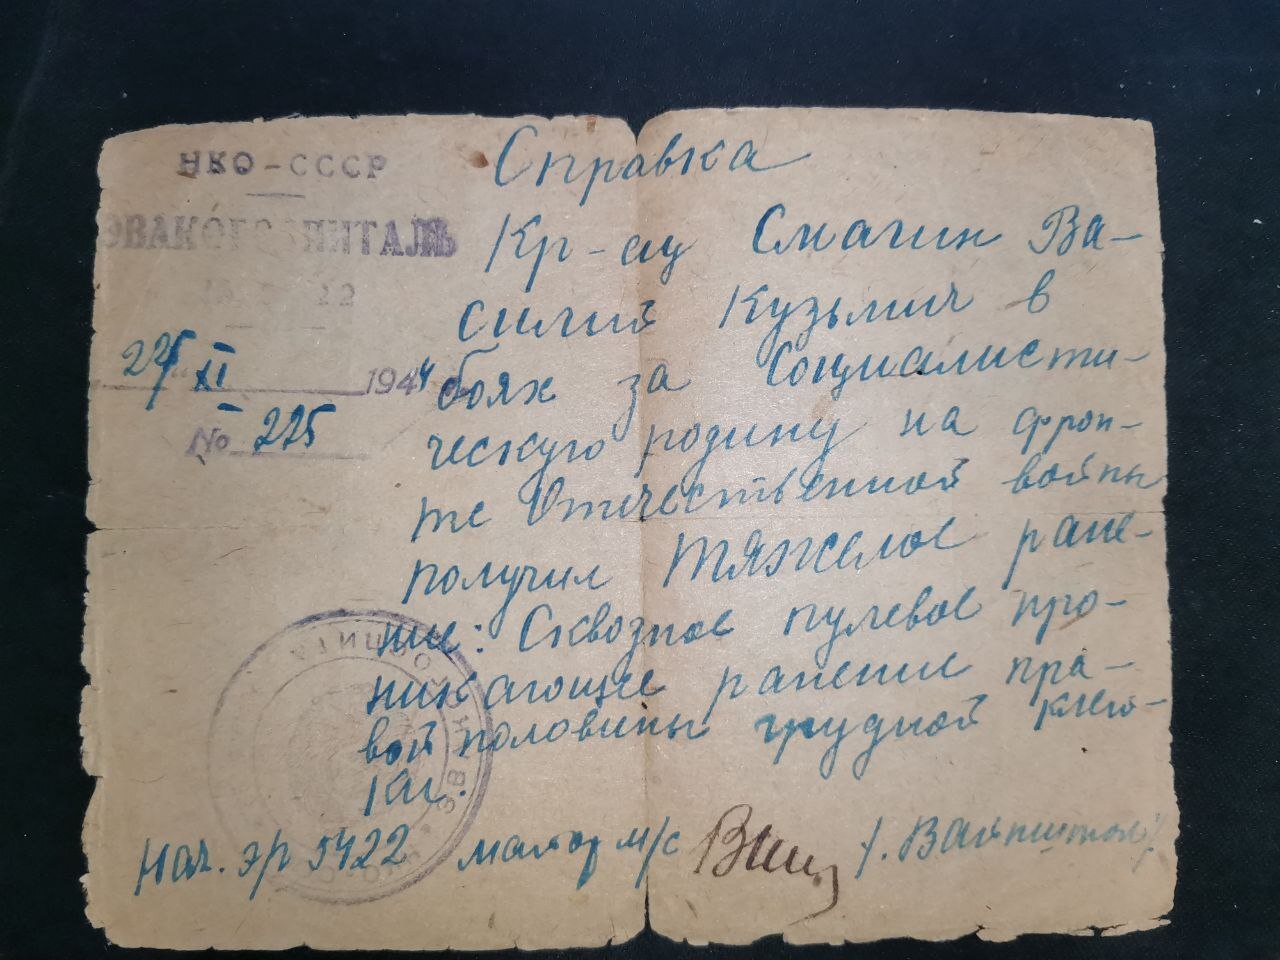 НКО-СССР
ЭВАКОГОСПИТАЛЬ
22
XI 1944
№ 225
Справка
Кр-ец Смагин Ва-
силий Кузьмич в
боях за Социалисти-
ческую родину на фрон-
те Отечественной войны
получил тяжелое ране-
ние: Сквозное пулевое про-
никающее ранение пра-
вой половины грудной клет-
ки.
Нач. э/г 5422 майор м/с /. Вайнштейн/